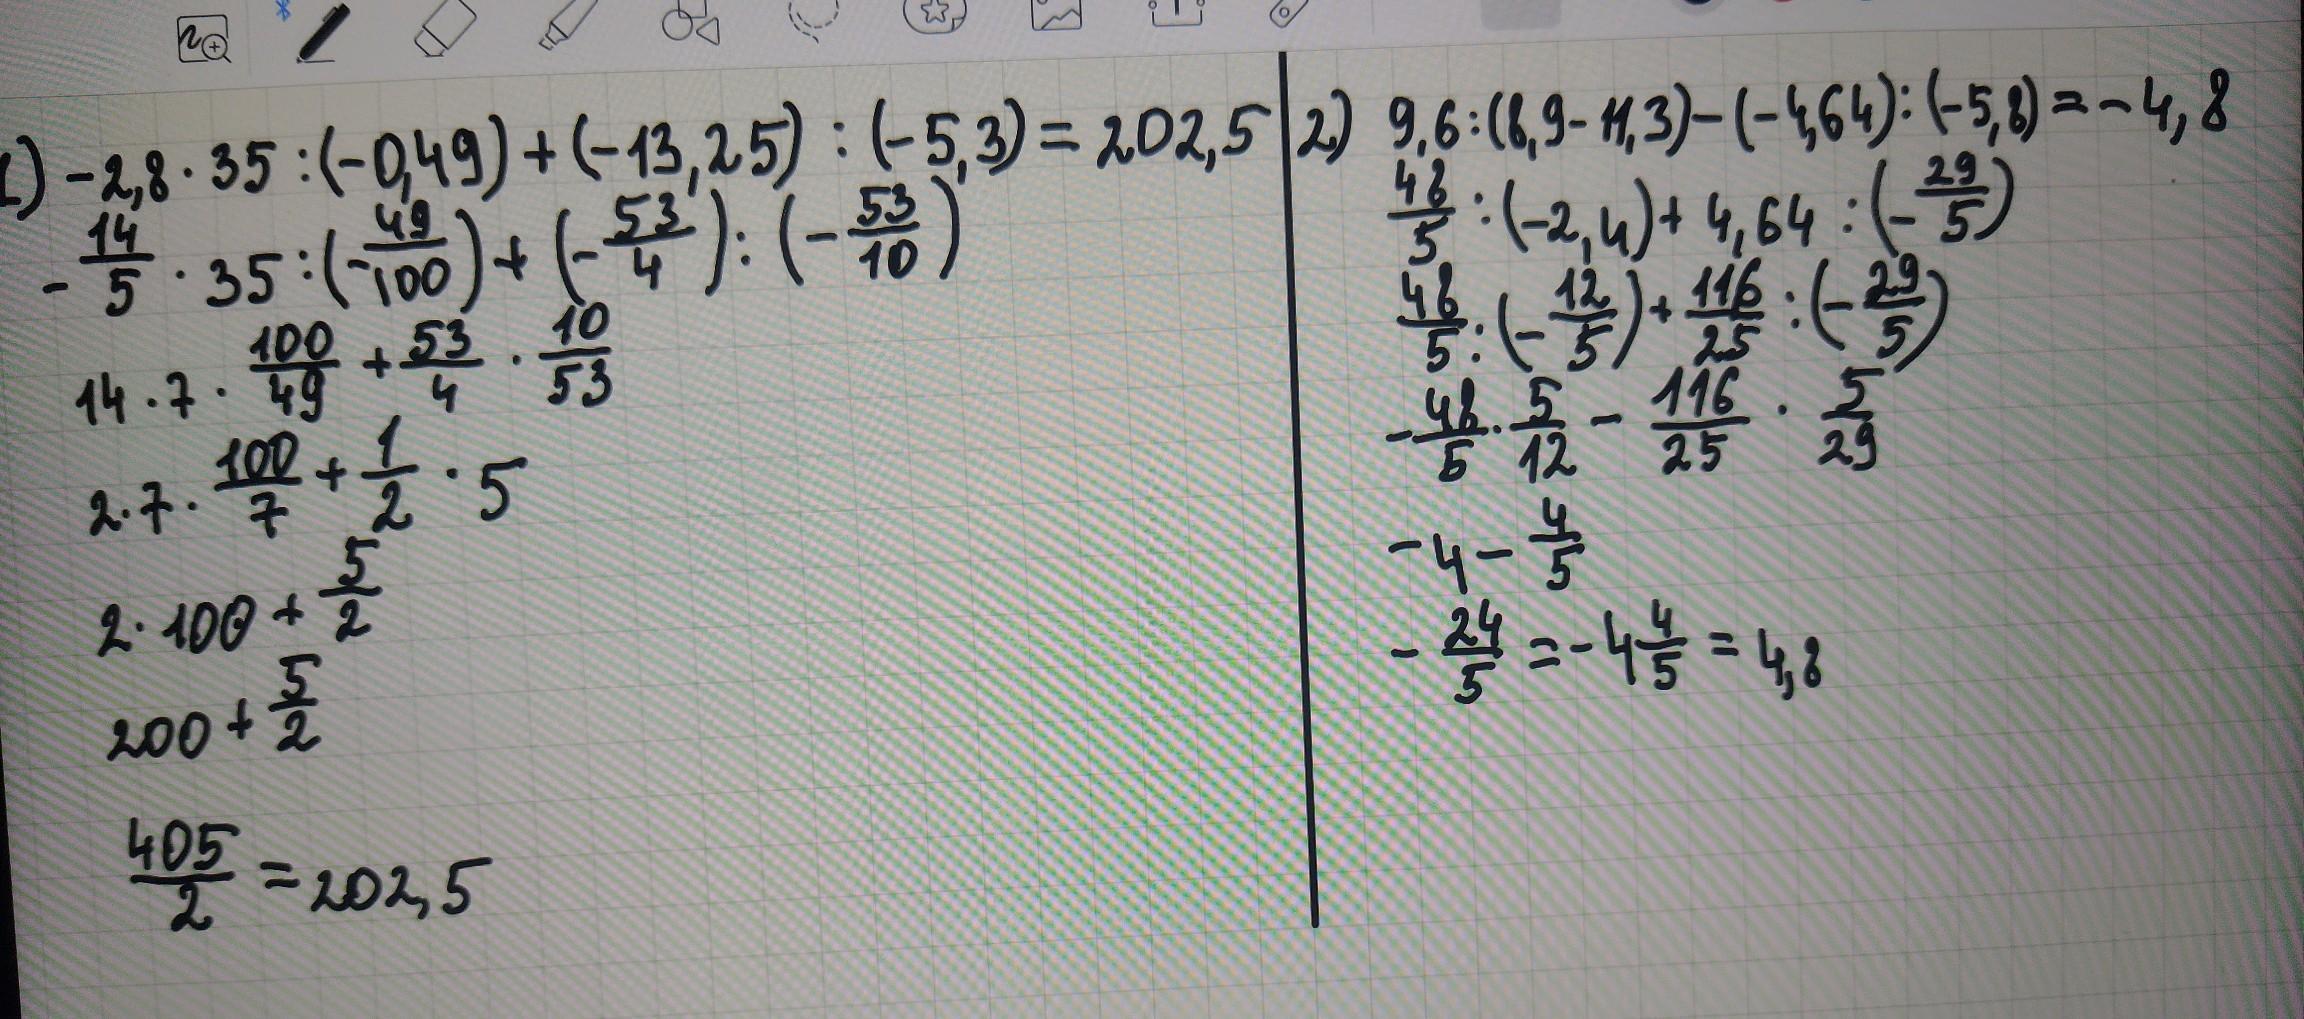 1) -2,8 · 35 : (-0,49) + (-13,25) : (-5,3) = 202,5
-14/5 · 35 : (-49/100) + (-53/4) : (-53/10)
14 · 7 · 100/49 + 53/4 · 10/53
2 · 7 · 100/7 + 1/2 · 5
2 · 100 + 5/2
200 + 5/2
405/2 = 202,5
2) 9,6 : (8,9 - 11,3) - (-4,64) : (-5,8) = -4,8
48/5 : (-2,4) + 4,64 : (-29/5)
48/5 : (-12/5) + 116/25 : (-29/5)
-48/5 · 5/12 - 116/25 · 5/29
-4 - 4/5
-24/5 = -4 4/5 = 4,8